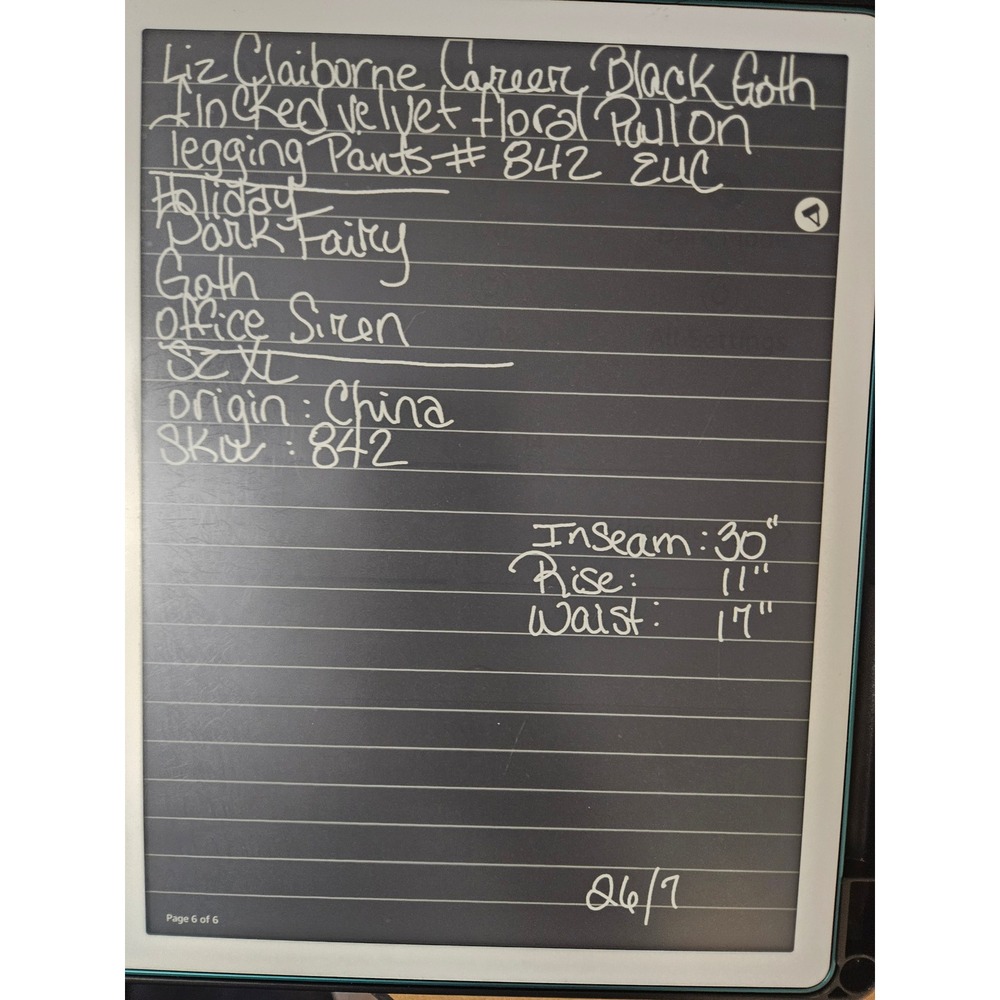 Liz Claiborne Career Black Goth
flocked velvet floral Pull on
legging Pants # 842 EUC
Holiday
Dark Fairy
Goth
office Siren
SZ XL
origin : China
SKU : 842
Inseam : 30"
Rise : 11"
Waist : 17"
26/7
Page 6 of 6